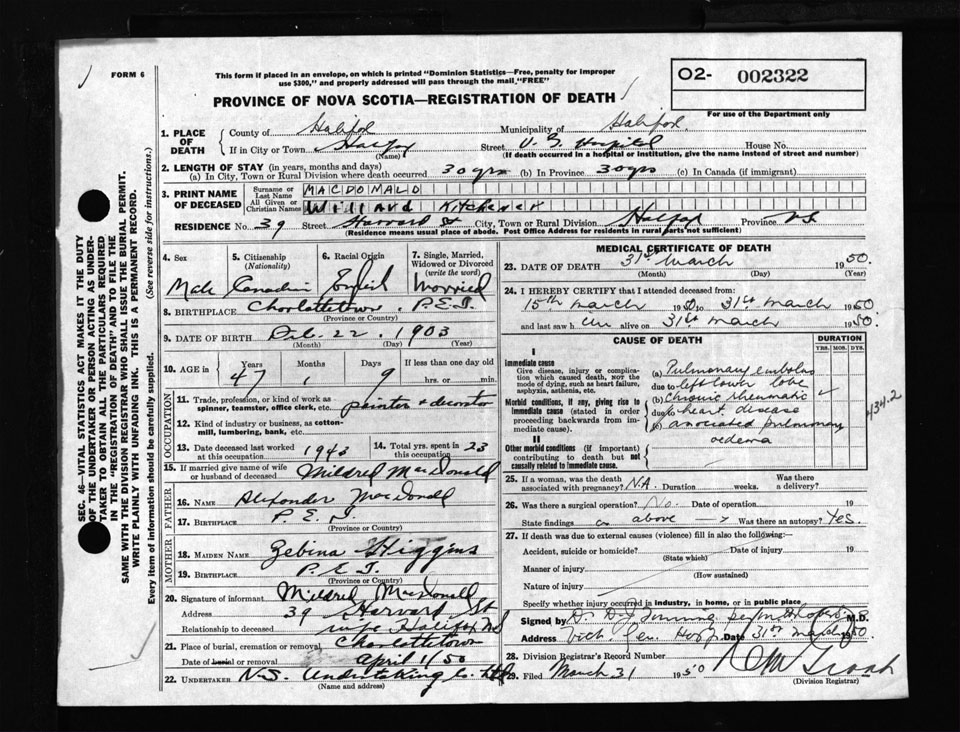 FORM 6
This form if placed in an envelope, on which is printed "Dominion Statistics—Free, penalty for improper
use $300," and properly addressed will pass through the mail "FREE"
O2- 002322
PROVINCE OF NOVA SCOTIA—REGISTRATION OF DEATH
For use of the Department only
SEC. 46—VITAL STATISTICS ACT MAKES IT THE DUTY
OF THE UNDERTAKER OR PERSON ACTING AS UNDER-
TAKER TO OBTAIN ALL THE PARTICULARS REQUIRED
IN THE "REGISTRATION OF DEATH" AND TO FILE THE
SAME WITH THE DIVISION REGISTRAR WHO SHALL ISSUE THE BURIAL PERMIT.
WRITE PLAINLY WITH UNFADING INK. THIS IS A PERMANENT RECORD.
Every item of information should be carefully supplied. (See reverse side for instructions.)
1. PLACE OF DEATH
County of Halifax Municipality of Halifax
If in City or Town Halifax Street V. G. Hospital House No.
(Name) (If death occurred in a hospital or institution, give the name instead of street and number)
2. LENGTH OF STAY (in years, months and days)
(a) In City, Town or Rural Division where death occurred 30 yrs (b) In Province 30 yrs (c) In Canada (if immigrant)
3. PRINT NAME OF DECEASED
Surname or Last Name MACDONALD
All Given or Christian Names Willard Kitchener
RESIDENCE No. 39 Street Harvard St City, Town or Rural Division Halifax Province N.S.
(Residence means usual place of abode. Post Office Address for residents in rural parts not sufficient)
4. Sex 5. Citizenship (Nationality) 6. Racial Origin 7. Single, Married, Widowed or Divorced (write the word)
Male Canadian English Married
8. BIRTHPLACE Charlottetown. P.E.I.
(Province or Country)
9. DATE OF BIRTH 22 1903
(Month) (Day) (Year)
10. AGE in Years Months Days If less than one day old
47 1 9 hrs. or min.
OCCUPATION
11. Trade, profession, or kind of work as
spinner, teamster, office clerk, etc. painter & decorator
12. Kind of industry or business, as cotton-
mill, lumbering, bank, etc.
13. Date deceased last worked at this occupation 1943 14. Total yrs. spent in 23
15. If married give name of wife
or husband of deceased Mildred MacDonald
FATHER
16. NAME Alexander MacDonald
17. BIRTHPLACE P.E.I
(Province or Country)
MOTHER
18. MAIDEN NAME Zebina Higgins
19. BIRTHPLACE P.E.I.
(Province or Country)
20. Signature of informant Mildred MacDonald
Address 39 Harvard St
Relationship to deceased wife Halifax NS
21. Place of burial, cremation or removal Charlottetown
Date of burial or removal April 1/50
22. UNDERTAKER N.S. Undertaking Co. Ltd
(Name and address)
MEDICAL CERTIFICATE OF DEATH
23. DATE OF DEATH 31st March 1950.
(Month) (Day) (Year)
24. I HEREBY CERTIFY that I attended deceased from:
15th March 1950 to 31st March 1950
and last saw him alive on 31st March 1950.
CAUSE OF DEATH DURATION
YRS. MOS. DYS.
I
Immediate cause
Give disease, injury or complica-
tion which caused death, NOT the
mode of dying, such as heart failure,
asphyxia, asthenia, etc.
Morbid conditions, if any, giving rise to
immediate cause (stated in order
proceeding backwards from im-
mediate cause).
II
Other morbid conditions (if important)
contributing to death but not
causally related to immediate cause.
(a) Pulmonary embolus
due to left lower lobe
(b) Chronic rheumatic
due to heart disease
(c) associated pulmonary
oedema
434.2
25. If a woman, was the death associated with pregnancy? N.A. Duration weeks. Was there a delivery?
26. Was there a surgical operation? No. Date of operation 19
State findings as above Was there an autopsy? Yes.
27. If death was due to external causes (violence) fill in also the following:
Accident, suicide or homicide? Date of injury 19
(State which)
Manner of injury
(How sustained)
Nature of injury
Specify whether injury occurred in industry, in home, or in public place
Signed by M.D.
Address Vict. Gen. Hosp. Date 31st March 1950
28. Division Registrar's Record Number
29. Filed March 31 1950
(Division Registrar)